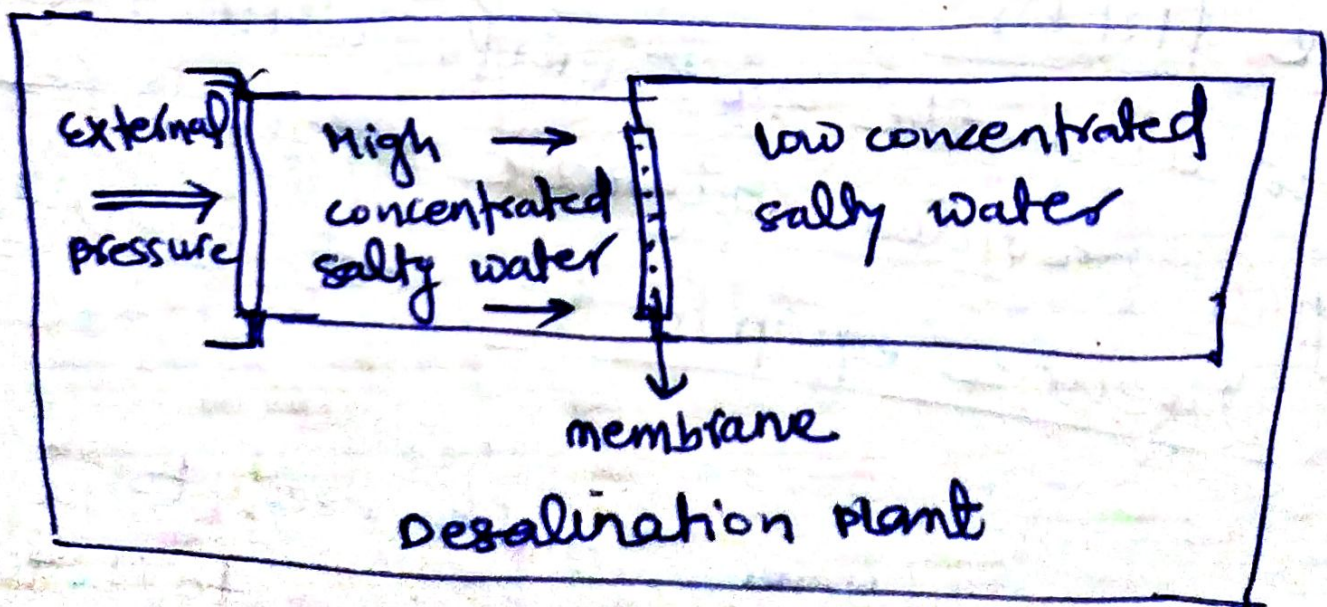 External
pressure
High
concentrated
salty water
low concentrated
salty water
membrane
Desalination plant